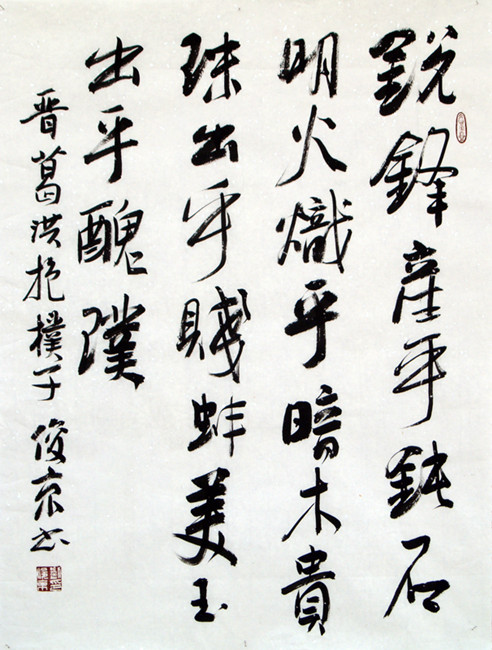 銳鋒產乎鈍石
明火熾乎暗木貴
珠出乎賤蚌美玉
出乎醜璞
晋葛洪抱樸子 俊京书